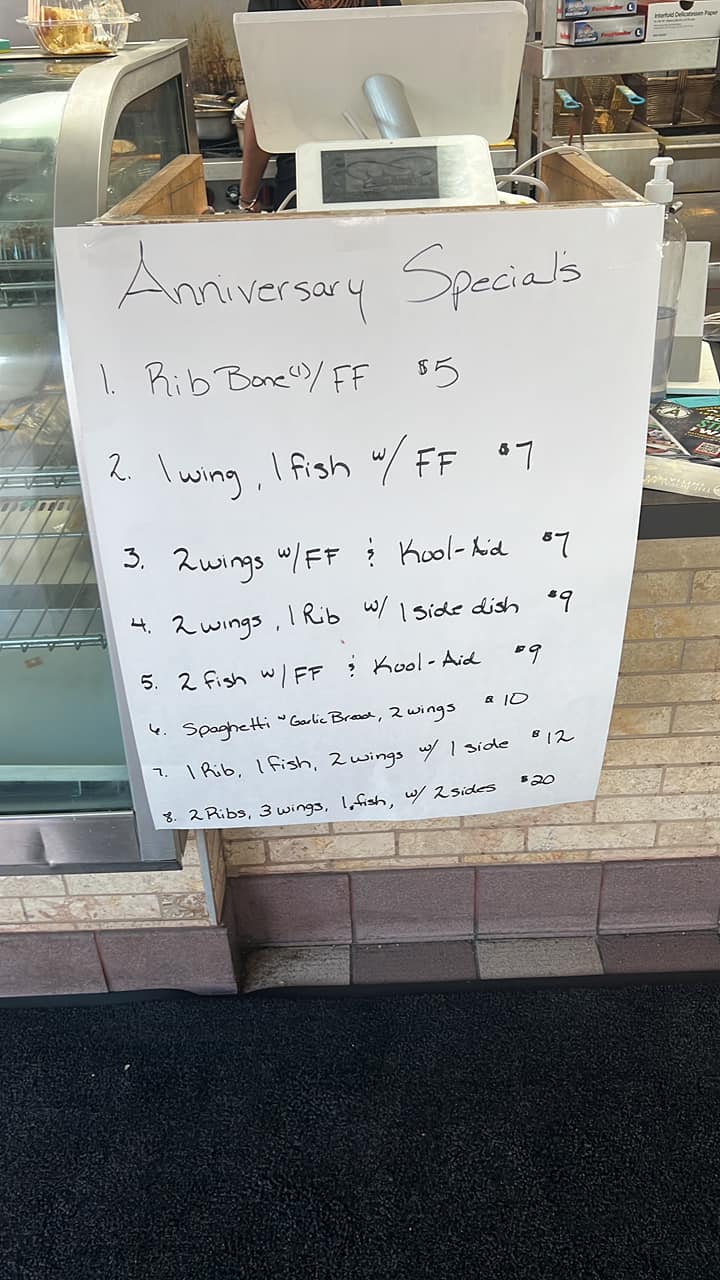 Interfold Delicatessen Paper
Anniversary Special's
1. Rib Bone(1)/FF $5
2. 1 wing, 1 fish w/ FF $7
3. 2 wings w/FF & Kool-Aid $7
4. 2 wings, 1 Rib w/ 1 side dish $9
5. 2 fish w/FF & Kool-Aid $9
6. Spaghetti w Garlic Bread, 2 wings $10
7. 1 Rib, 1 fish, 2 wings w/ 1 side $12
8. 2 Ribs, 3 wings, 1 fish, w/ 2 sides $20